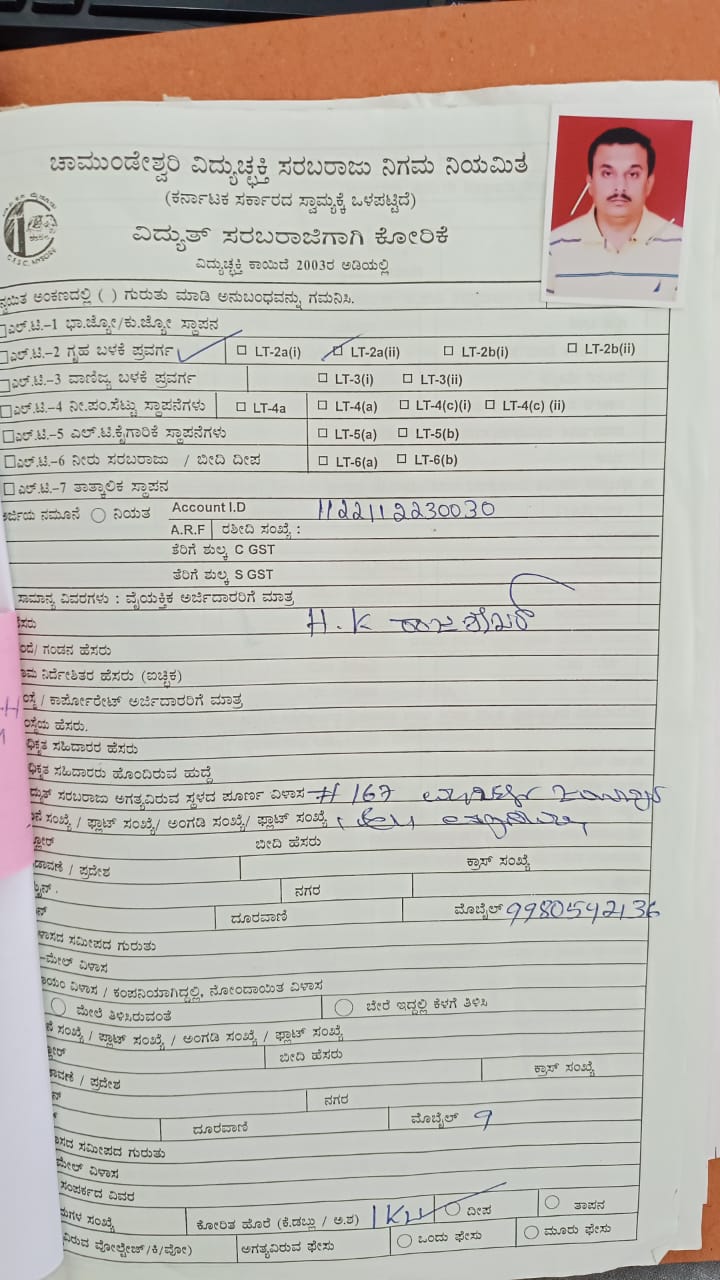 ಚಾಮುಂಡೇಶ್ವರಿ ವಿದ್ಯುಚ್ಛಕ್ತಿ ಸರಬರಾಜು ನಿಗಮ ನಿಯಮಿತ
(ಕರ್ನಾಟಕ ಸರ್ಕಾರದ ಸ್ವಾಮ್ಯಕ್ಕೆ ಒಳಪಟ್ಟಿದೆ)
ವಿದ್ಯುತ್ ಸರಬರಾಜಿಗಾಗಿ ಕೋರಿಕೆ
ವಿದ್ಯುಚ್ಛಕ್ತಿ ಕಾಯಿದೆ 2003ರ ಅಡಿಯಲ್ಲಿ
ಅಂಕಣದಲ್ಲಿ ( ) ಗುರುತು ಮಾಡಿ ಅನುಬಂಧವನ್ನು ಗಮನಿಸಿ.
ಎಲ್.ಟಿ.-1 ಭಾ.ಜ್ಯೋ/ಕು.ಜ್ಯೋ ಸ್ಥಾಪನ
ಎಲ್.ಟಿ.-2 ಗೃಹ ಬಳಕೆ ಪ್ರವರ್ಗ LT-2a(i) LT-2a(ii) LT-2b(i) LT-2b(ii)
ಎಲ್.ಟಿ.-3 ವಾಣಿಜ್ಯ ಬಳಕೆ ಪ್ರವರ್ಗ LT-3(i) LT-3(ii)
ಎಲ್.ಟಿ.-4 ನೀ.ಪಂ.ಸೆಟ್ಟು ಸ್ಥಾಪನೆಗಳು LT-4a LT-4(a) LT-4(c)(i) LT-4(c) (ii)
ಎಲ್.ಟಿ.-5 ಎಲ್.ಟಿ.ಕೈಗಾರಿಕೆ ಸ್ಥಾಪನೆಗಳು LT-5(a) LT-5(b)
ಎಲ್.ಟಿ.-6 ನೀರು ಸರಬರಾಜು / ಬೀದಿ ದೀಪ LT-6(a) LT-6(b)
ಎಲ್.ಟಿ.-7 ತಾತ್ಕಾಲಿಕ ಸ್ಥಾಪನ
ನಮೂನೆ ನಿಯತ Account I.D 1122112230030
A.R.F ರಶೀದಿ ಸಂಖ್ಯೆ :
ತೆರಿಗೆ ಶುಲ್ಕ C GST
ತೆರಿಗೆ ಶುಲ್ಕ S GST
ಸಾಮಾನ್ಯ ವಿವರಗಳು : ವೈಯಕ್ತಿಕ ಅರ್ಜಿದಾರರಿಗೆ ಮಾತ್ರ
H.K ರಾಜಶೇಖರ್
/ ಗಂಡನ ಹೆಸರು
ನಿರ್ದೇಶಿತರ ಹೆಸರು (ಐಚ್ಛಿಕ)
/ ಕಾರ್ಪೋರೇಟ್ ಅರ್ಜಿದಾರರಿಗೆ ಮಾತ್ರ
ಹೆಸರು.
ಸಹಿದಾರರ ಹೆಸರು
ಸಹಿದಾರರು ಹೊಂದಿರುವ ಹುದ್ದೆ
ಸರಬರಾಜು ಅಗತ್ಯವಿರುವ ಸ್ಥಳದ ಪೂರ್ಣ ವಿಳಾಸ # 167
ಸಂಖ್ಯೆ / ಫ್ಲಾಟ್ ಸಂಖ್ಯೆ/ ಅಂಗಡಿ ಸಂಖ್ಯೆ/ ಫ್ಲಾಟ್ ಸಂಖ್ಯೆ
ಬೀದಿ ಹೆಸರು
/ ಪ್ರದೇಶ ಕ್ರಾಸ್ ಸಂಖ್ಯೆ
ನಗರ
ದೂರವಾಣಿ ಮೊಬೈಲ್ 9980542136
ಸಮೀಪದ ಗುರುತು
ಮೇಲ್ ವಿಳಾಸ
ವಿಳಾಸ / ಕಂಪನಿಯಾಗಿದ್ದಲ್ಲಿ, ನೋಂದಾಯಿತ ವಿಳಾಸ
ಮೇಲೆ ತಿಳಿಸಿರುವಂತೆ ಬೇರೆ ಇದ್ದಲ್ಲಿ ಕೆಳಗೆ ತಿಳಿಸಿ
ಸಂಖ್ಯೆ / ಪ್ಲಾಟ್ ಸಂಖ್ಯೆ / ಅಂಗಡಿ ಸಂಖ್ಯೆ / ಫ್ಲಾಟ್ ಸಂಖ್ಯೆ
ಬೀದಿ ಹೆಸರು
/ ಪ್ರದೇಶ ಕ್ರಾಸ್ ಸಂಖ್ಯೆ
ನಗರ
ದೂರವಾಣಿ ಮೊಬೈಲ್ 9
ಸಮೀಪದ ಗುರುತು
ಮೇಲ್ ವಿಳಾಸ
ಸಂಪರ್ಕದ ವಿವರ
ಸಂಖ್ಯೆ ಕೋರಿತ ಹೊರೆ (ಕೆ.ಡಬ್ಲು / ಅ.ಶ) 1KW ದೀಪ ತಾಪನ
ವೋಲ್ಟೇಜ್/ಕಿ/ವೋ) ಅಗತ್ಯವಿರುವ ಫೇಸು ಒಂದು ಫೇಸು ಮೂರು ಫೇಸು